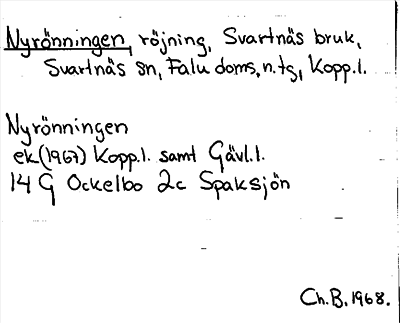 Nyrönningen, röjning, Svartnäs bruk,
Svartnäs sn, Falu doms. n. tg, Kopp.l.
Nyrönningen
ek(1967) Kopp.l. samt Gävl.l.
14 G Ockelbo 2c Spaksjön
Ch.B. 1968.